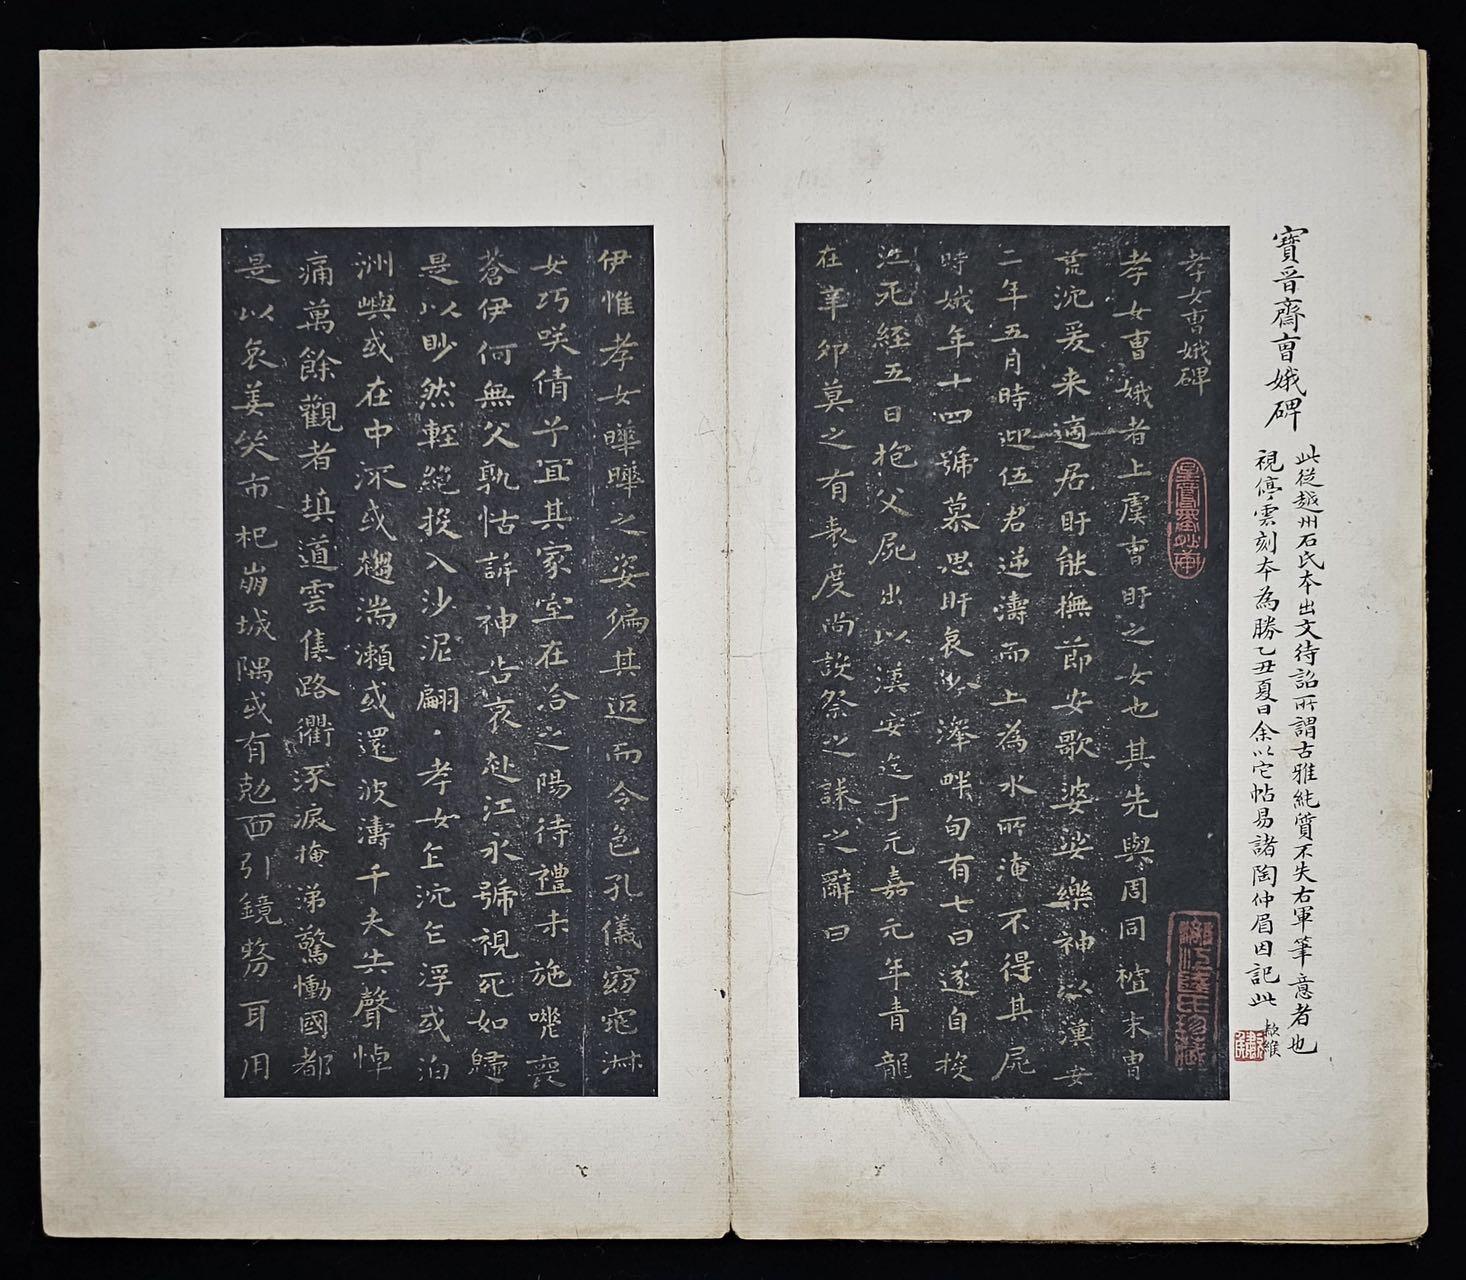 寶晉齋曺娥碑
此從越州石氏本出文待詔所謂古雅純質不失右軍筆意者也
視停雲刻本為勝乙丑夏日余以它帖易諸陶仲眉因記此
孝女曺娥碑
孝女曺娥者上虞曺盱之女也其先與周同禋末曺
荒沉爰来適居盱能撫節安歌婆娑樂神以漢安
二年五月時迎伍君逆濤而上為水所淹不得其屍
時娥年十四號慕思盱哀吟澤畔旬有七日遂自投
江死經五日抱父屍出以漢安迄于元嘉元年青龍
在辛卯莫之有表度尚設祭之誄之辭曰
伊惟孝女曄曄之姿偏其返而令色孔儀窈窕淑
女巧咲倩兮宜其家室在洽之陽待禮未施嗟喪
蒼伊何無父孰怙訴神告哀赴江永號視死如歸
是以眇然輕絕投入沙泥翩翩孝女乍沉乍浮或泊
洲嶼或在中流或趨湍瀬或還波濤千夫失聲悼
痛萬餘觀者填道雲集路衢流淚掩涕驚慟國都
是以哀姜哭市杞崩城隅或有剋面引鏡剺耳用